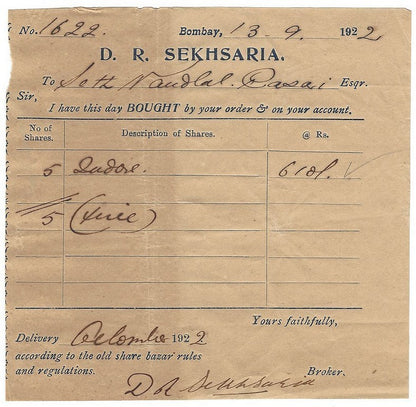 No. 1622. Bombay, 13-9. 1922
D. R. SEKHSARIA.
To Seth Nandlal. Pasari Esqr.
Sir,
I have this day BOUGHT by your order & on your account,
No of Shares. Description of Shares. @ Rs.
5 Indore. 610/.
5 (Five)
Yours faithfully,
Delivery October 1922
according to the old share bazar rules
and regulations. Broker.
D R Sekhsaria